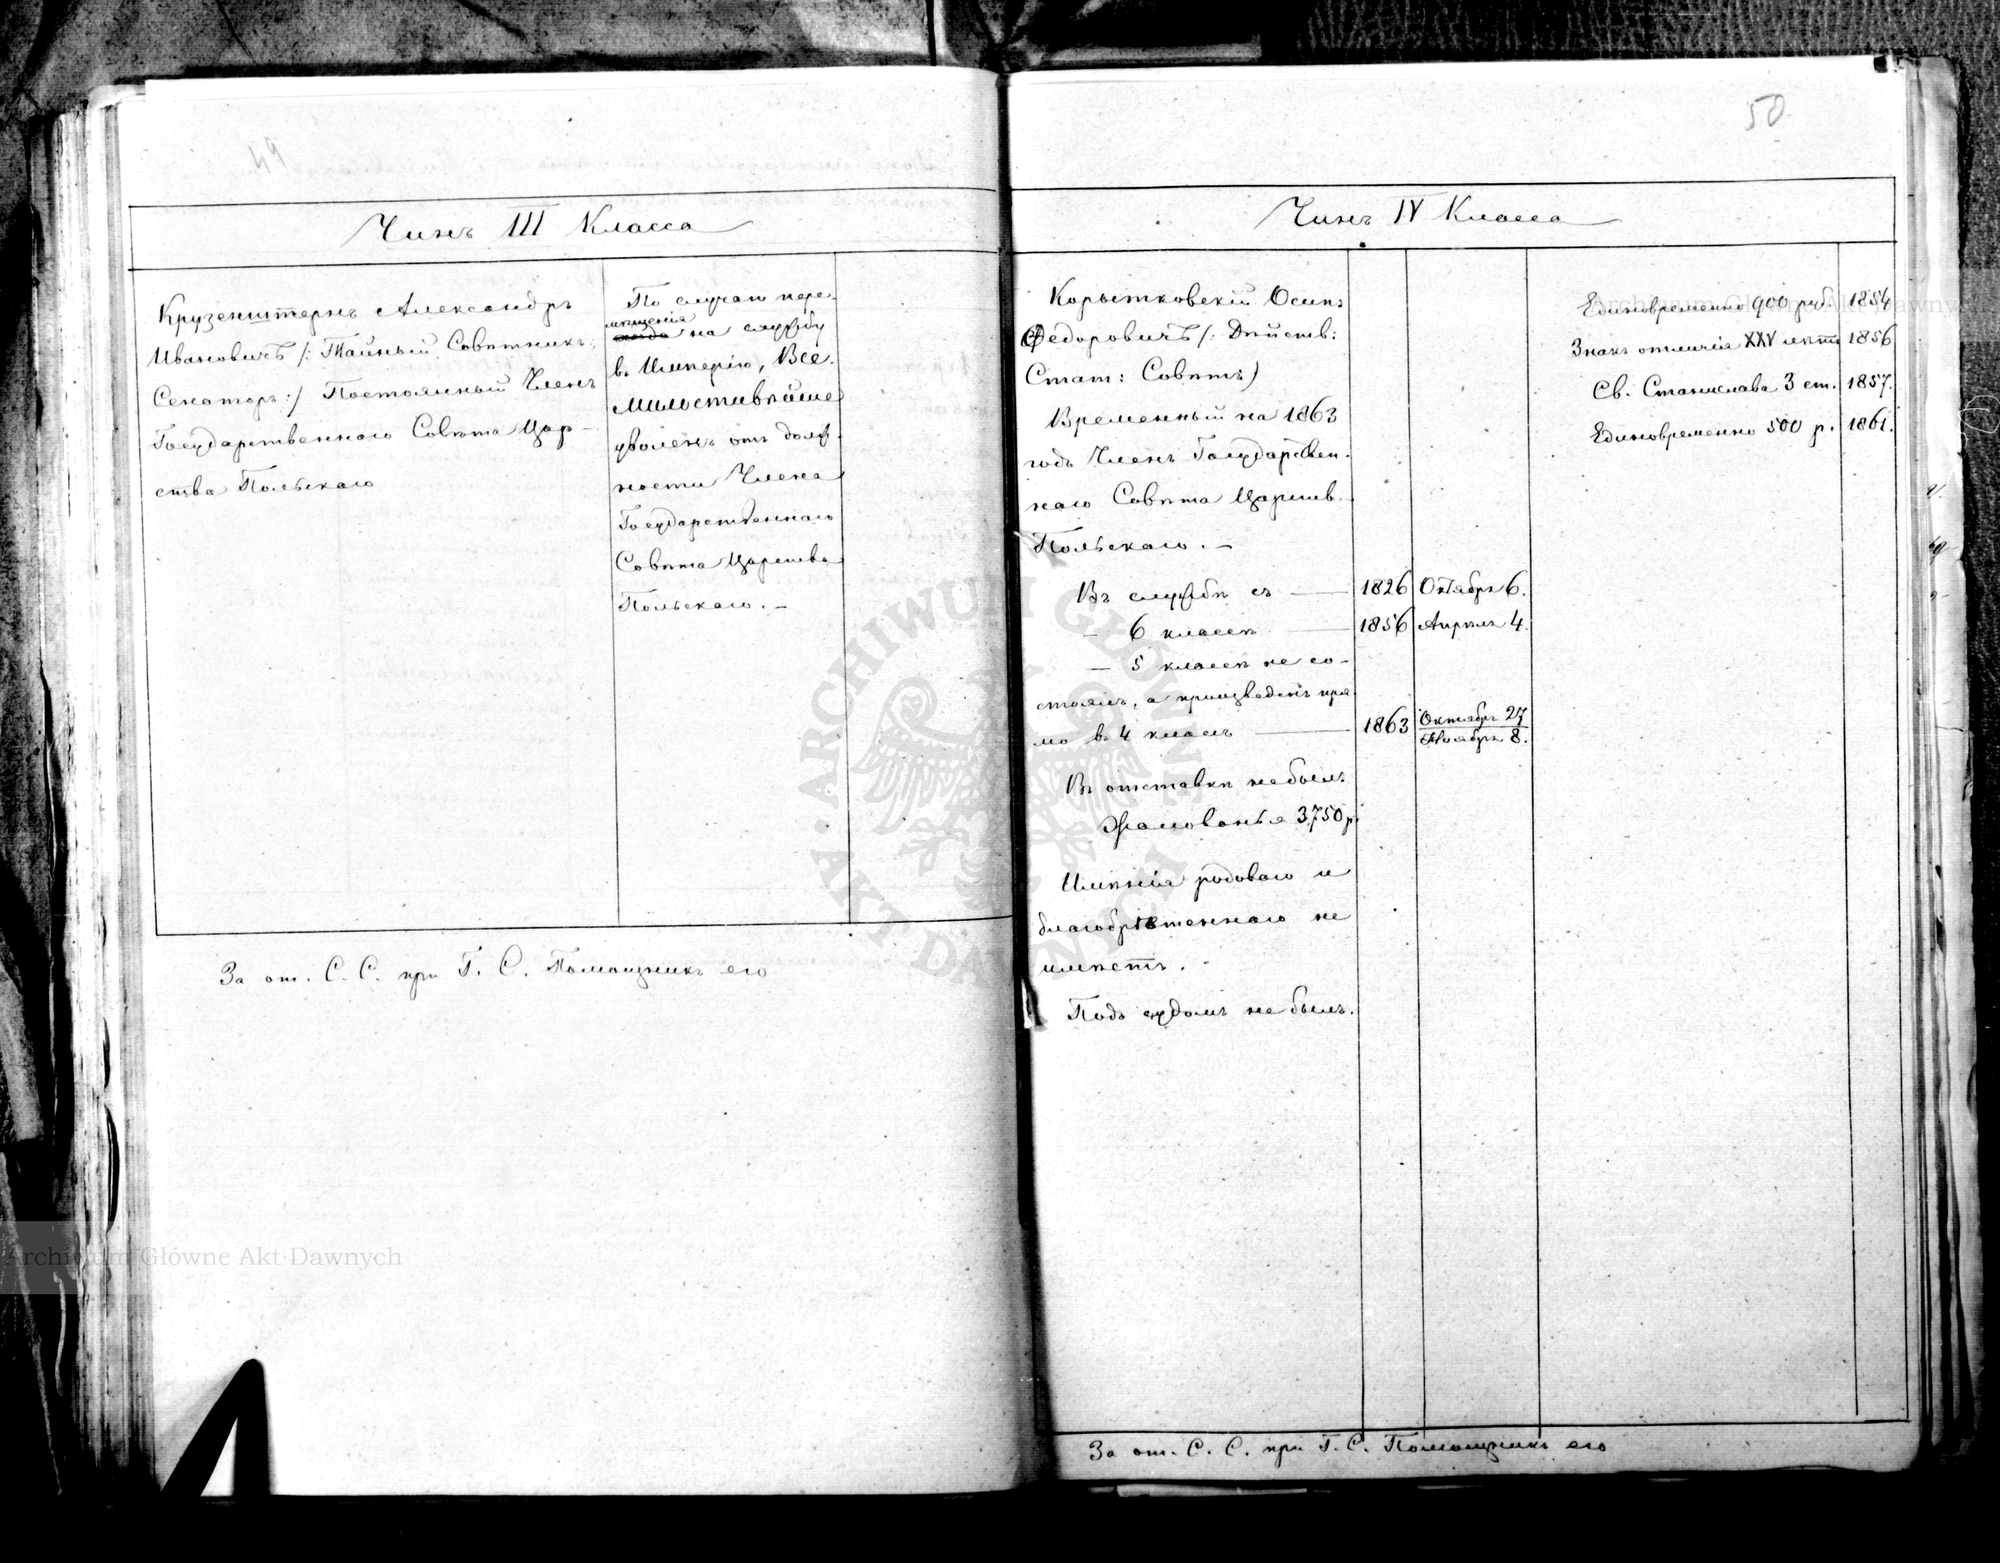 Чинъ III Класса
Крузенштернъ Александръ
Ивановичъ /: Тайный Совѣтникъ,
Сенаторъ :/ Постоянный Членъ
Государственнаго Совѣта Цар-
ства Польскаго
По случаю пере-
мѣщенія
на службу
въ Имперію, Все-
милостивѣйше
уволенъ отъ долж-
ности Члена
Государственнаго
Совѣта Царства
Польскаго. —
За от. С. С. при Г. С. Помощникъ его
50
Чинъ IV Класса
Корытковскій Осипъ
Ѳедоровичъ /: Дѣйств:
Стат: Совѣтъ)
Временный на 1863
годъ Членъ Государствен-
наго Совѣта Царств.
Польскаго. —
Въ службѣ съ — 1826 Октября 6.
— 6 классѣ — 1856 Апрѣля 4.
— 5 классѣ не со-
стоялъ, а произведенъ пря-
мо въ 4 классъ — 1863 Октября 27
Ноября 8.
Въ отставкѣ не былъ
Жалованья 3,750 р.
Имѣнія родоваго и
благобрѣтеннаго не
имѣетъ.
Подъ судомъ не былъ.
Единовременно 900 руб. 1854
Знакъ отличія XXV лѣтъ 1856
Св. Станислава 3 ст. 1857.
Единовременно 500 р. 1861.
За от. С. С. при Г. С. Помощникъ его
Archiwum Główne Akt Dawnych
Archiwum Główne Akt Dawnych
ARCHIWUM GŁÓWNE AKT DAWNYCH